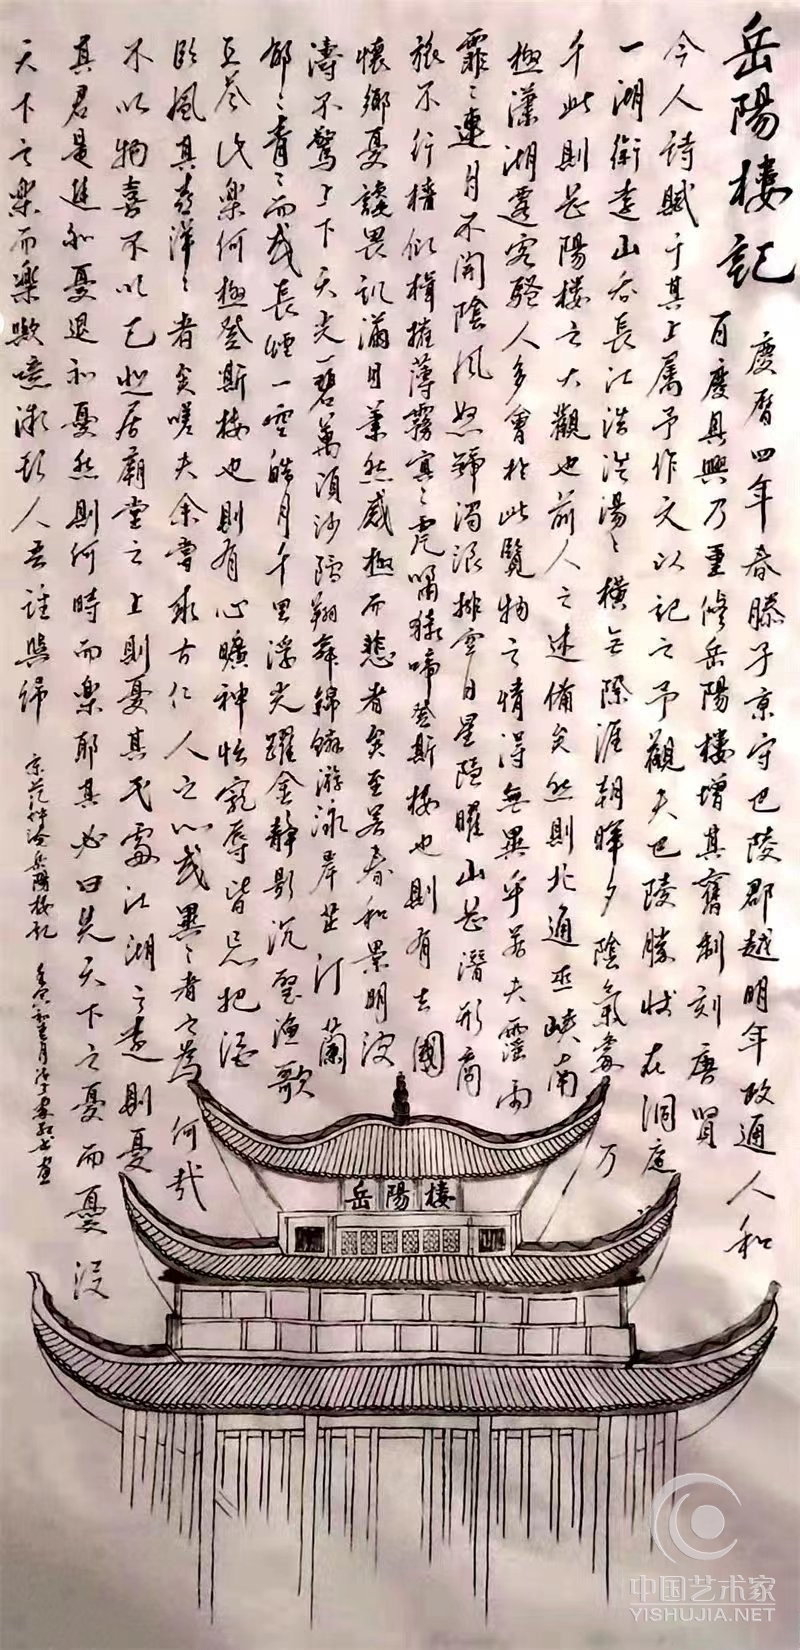 岳陽樓記
慶曆四年春滕子京守巴陵郡越明年政通人和
百廢具興乃重修岳陽樓增其舊制刻唐賢
今人詩賦于其上属予作文以記之予觀夫巴陵勝狀在洞庭
一湖銜遠山吞長江浩浩湯〻橫無際涯朝暉夕陰氣象万
千此則岳陽樓之大觀也前人之述備矣然則北通巫峽南
極瀟湘遷客騷人多會於此覽物之情得無異乎若夫霪雨
霏〻連月不開陰風怒號濁浪排空日星隱曜山岳潛形商
旅不行檣傾楫摧薄霧冥〻虎嘯猿啼登斯樓也則有去國
懷鄉憂讒畏譏滿目蕭然感極而悲者矣至若春和景明波
濤不驚上下天光一碧萬頃沙鷗翔舞錦鱗游泳岸芷汀蘭
郁〻青〻而或長煙一空皓月千里浮光躍金靜影沉璧漁歌
互答此樂何極登斯樓也則有心曠神怡寵辱皆忘把酒
臨風其喜洋〻者矣嗟夫余嘗求古仁人之心或異〻者之為何哉
不以物喜不以己悲居廟堂之上則憂其民處江湖之遠則憂
其君是進亦憂退亦憂然則何時而樂耶其必曰先天下之憂而憂後
天下之樂而樂歟噫微斯人吾誰與歸
宋范仲淹岳陽樓記
岳陽樓
中国艺术家
YISHUJIA.NET